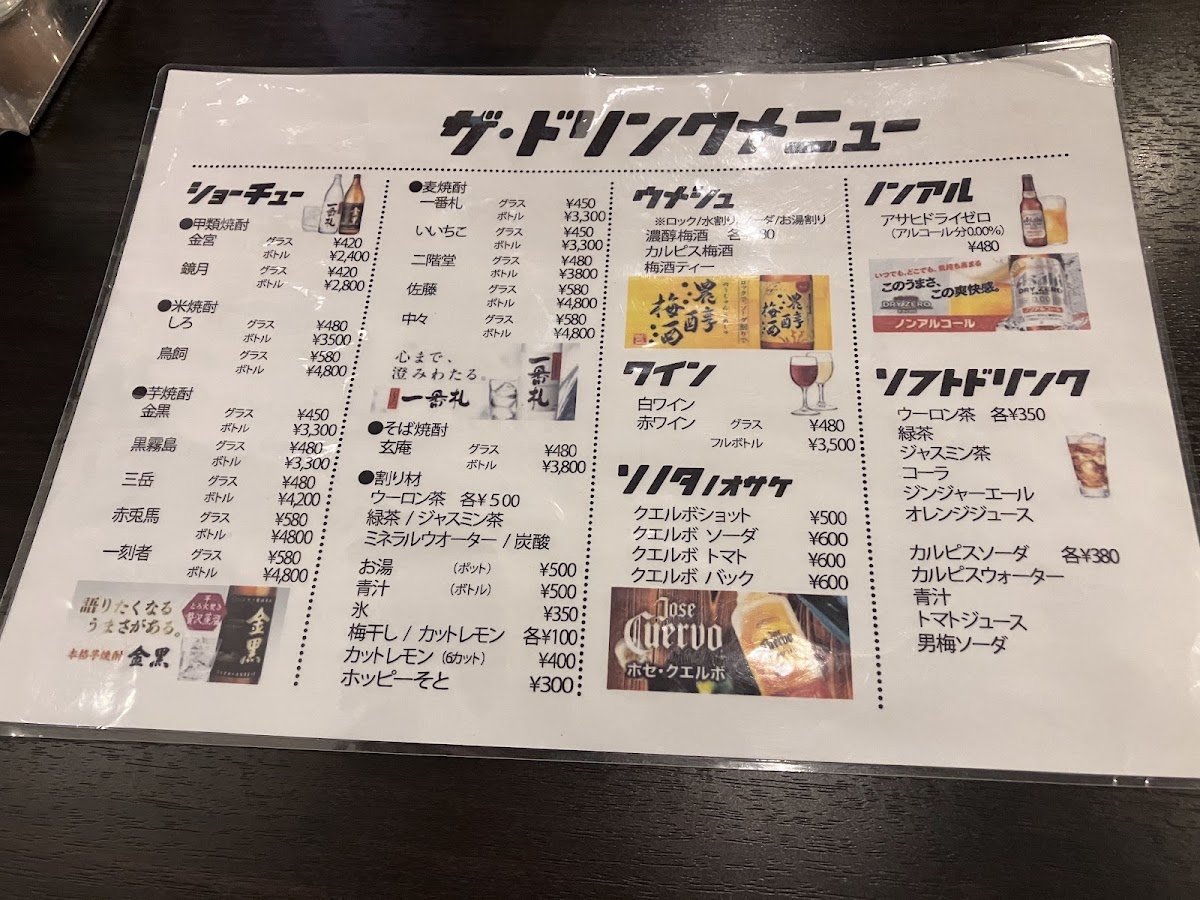 ザ・ドリンクメニュー
ショーチュー
●甲類焼酎
金宮 グラス ¥420
ボトル ¥2,400
鏡月 グラス ¥420
ボトル ¥2,800
●米焼酎
しろ グラス ¥480
ボトル ¥3500
鳥飼 グラス ¥580
ボトル ¥4,800
●芋焼酎
金黒 グラス ¥450
ボトル ¥3,300
黒霧島 グラス ¥480
ボトル ¥3,300
三岳 グラス ¥480
ボトル ¥4,200
赤兎馬 グラス ¥580
ボトル ¥4800
一刻者 グラス ¥580
ボトル ¥4,800
語りたくなる
うまさがある。
本格芋焼酎 金黒
贅沢蒸溜
金黒
●麦焼酎
一番札 グラス ¥450
ボトル ¥3,300
いいちこ グラス ¥450
ボトル ¥3,300
二階堂 グラス ¥480
ボトル ¥3800
佐藤 グラス ¥580
ボトル ¥4,800
中々 グラス ¥580
ボトル ¥4,800
心まで、
澄みわたる。
一番札
一番札
●そば焼酎
玄庵 グラス ¥480
ボトル ¥3,800
●割り材
ウーロン茶 各¥500
緑茶 / ジャスミン茶
ミネラルウオーター / 炭酸
お湯 (ポット) ¥500
青汁 (ボトル) ¥500
氷 ¥350
梅干し / カットレモン 各¥100
カットレモン (6カット) ¥400
ホッピーそと ¥300
ウメシュ
※ロック/水割り/ソーダ/お湯割り
濃醇梅酒 各 80
カルピス梅酒
梅酒ティー
濃醇梅酒
濃醇梅酒
ワイン
白ワイン
赤ワイン グラス ¥480
フルボトル ¥3,500
ソノタノオサケ
クエルボショット ¥500
クエルボ ソーダ ¥600
クエルボ トマト ¥600
クエルボ バック ¥600
Jose
Cuervo
ホセ・クエルボ
ノンアル
アサヒドライゼロ
(アルコール分0.00%)
¥480
いつでも、どこでも、気持ち高まる
このうまさ、この爽快感。
DRY ZERO
ノンアルコール
DRY ZERO
ソフトドリンク
ウーロン茶 各¥350
緑茶
ジャスミン茶
コーラ
ジンジャーエール
オレンジジュース
カルピスソーダ 各¥380
カルピスウォーター
青汁
トマトジュース
男梅ソーダ